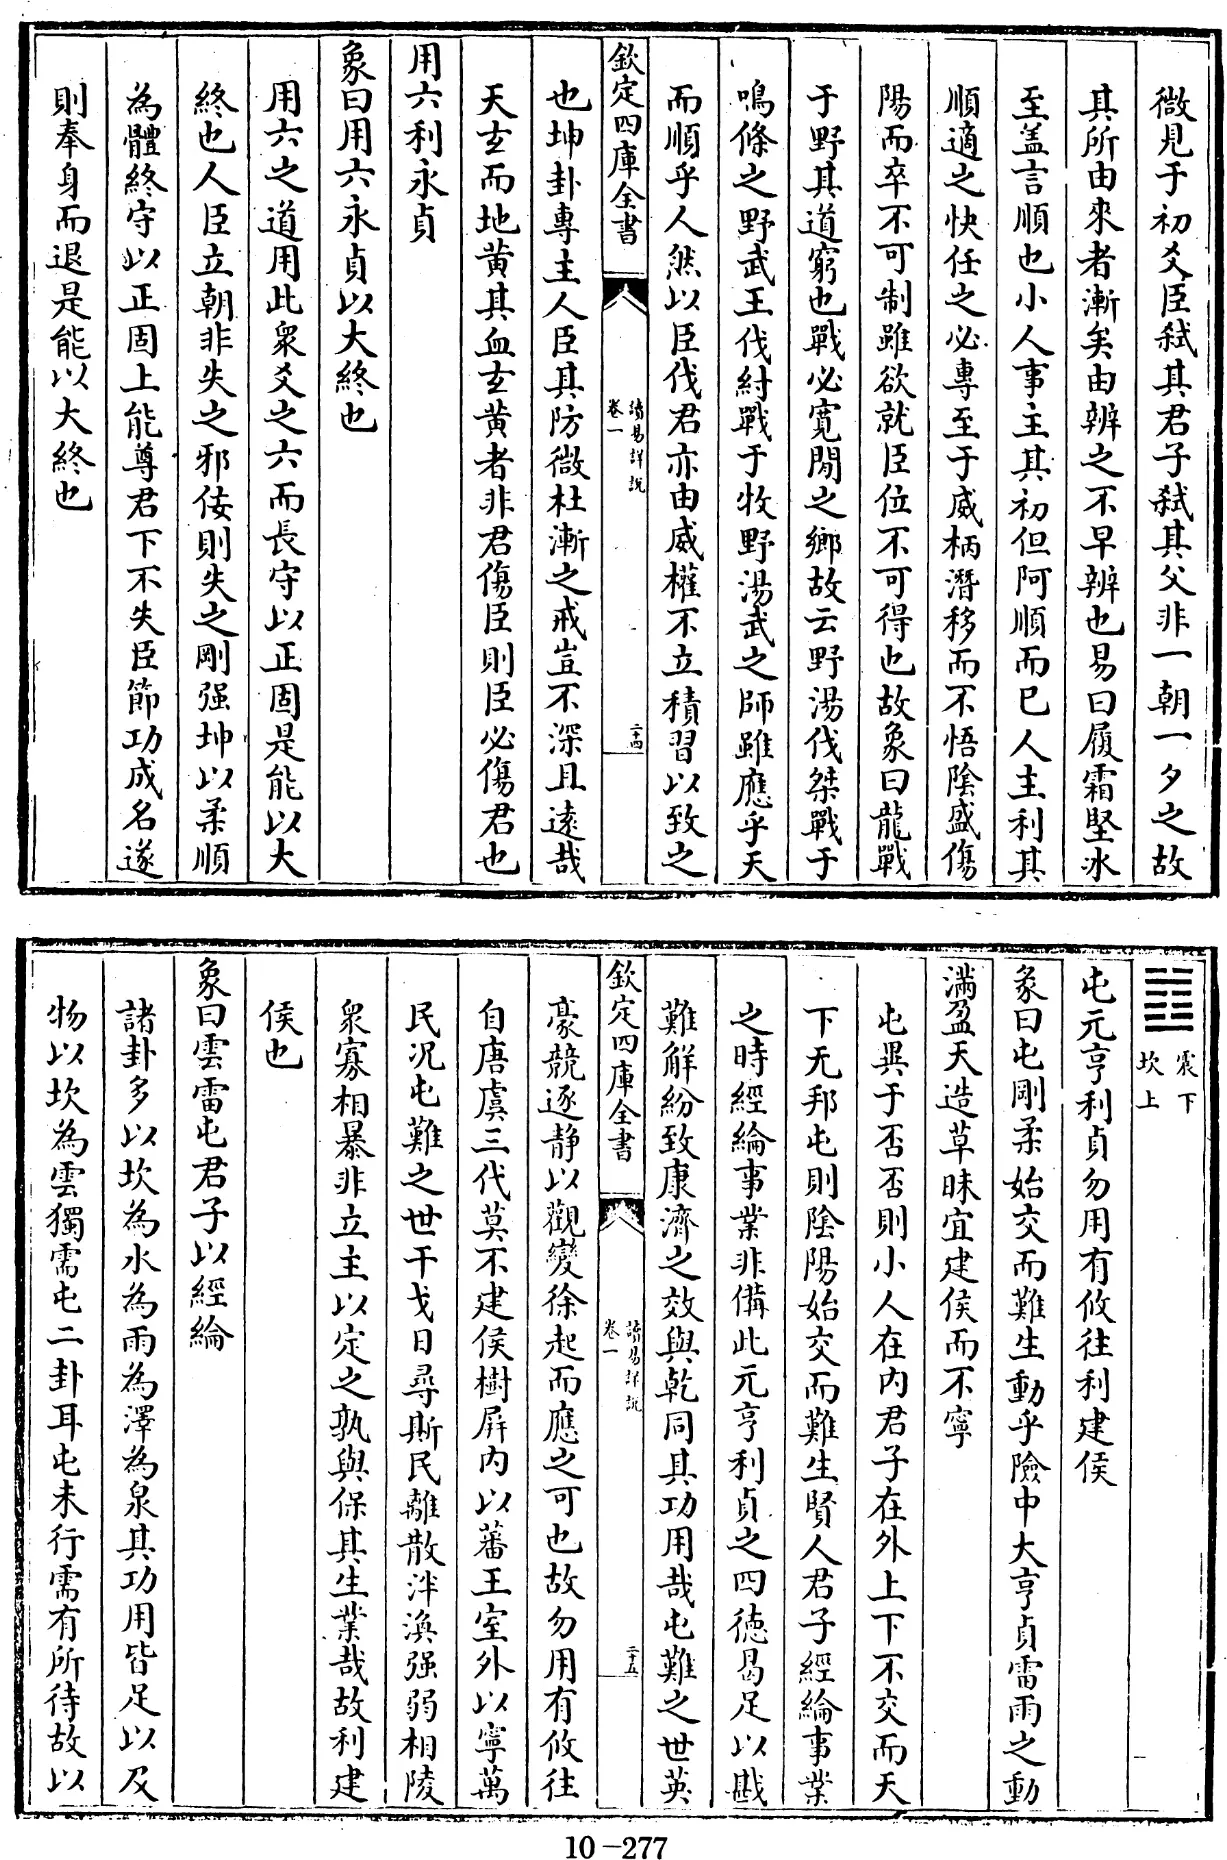 微見于初爻臣弑其君子弑其父非一朝一夕之故
其所由來者漸矣由辨之不早辨也易曰履霜堅冰
至盖言順也小人事主其初但阿順而已人主利其
順適之快任之必專至于威柄潛移而不悟陰盛傷
陽而卒不可制雖欲就臣位不可得也故象曰龍戰
于野其道窮也戰必寛閒之鄉故云野湯伐桀戰于
鳴條之野武王伐紂戰于牧野湯武之師雖應乎天
而順乎人然以臣伐君亦由威權不立積習以致之
欽定四庫全書
讀易詳說
卷一
二十四
也坤卦專主人臣其防微杜漸之戒豈不深且逺哉
天玄而地黄其血玄黄者非君傷臣則臣必傷君也
用六利永貞
象曰用六永貞以大終也
用六之道用此衆爻之六而長守以正固是能以大
終也人臣立朝非失之邪佞則失之剛强坤以柔順
為體終守以正固上能尊君下不失臣節功成名遂
則奉身而退是能以大終也
震下
坎上
屯元亨利貞勿用有攸往利建侯
彖曰屯剛柔始交而難生動乎險中大亨貞雷雨之動
滿盈天造草昧宜建侯而不寧
屯異于否否則小人在内君子在外上下不交而天
下无邦屯則陰陽始交而難生賢人君子經綸事業
之時經綸事業非備此元亨利貞之四徳曷足以戡
難解紛致康濟之效與乾同其功用哉屯難之世英
欽定四庫全書
讀易詳說
卷一
二十五
豪競逐静以觀變徐起而應之可也故勿用有攸往
自唐虞三代莫不建侯樹屏内以蕃王室外以寧萬
民况屯難之世干戈日尋斯民離散泮渙强弱相陵
衆寡相暴非立主以定之孰與保其生業哉故利建
侯也
象曰雲雷屯君子以經綸
諸卦多以坎為水為雨為澤為泉其功用皆足以及
物以坎為雲獨需屯二卦耳屯未行需有所待故以
10-277